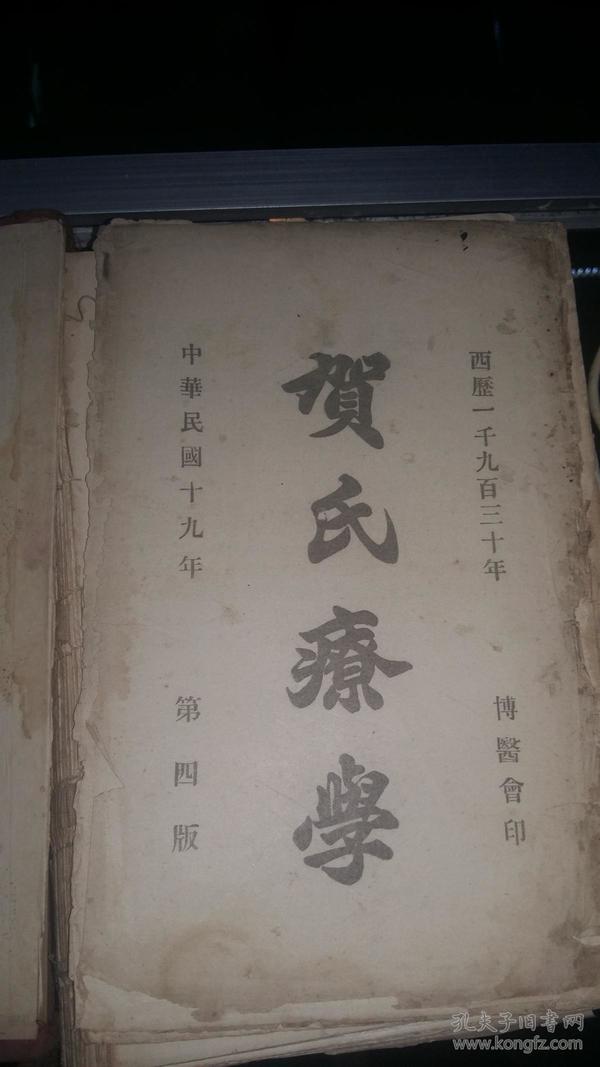 西歷一千九百三十年
博醫會印
賀氏療學
中華民國十九年
第四版
孔夫子旧书网
www.kongfz.com